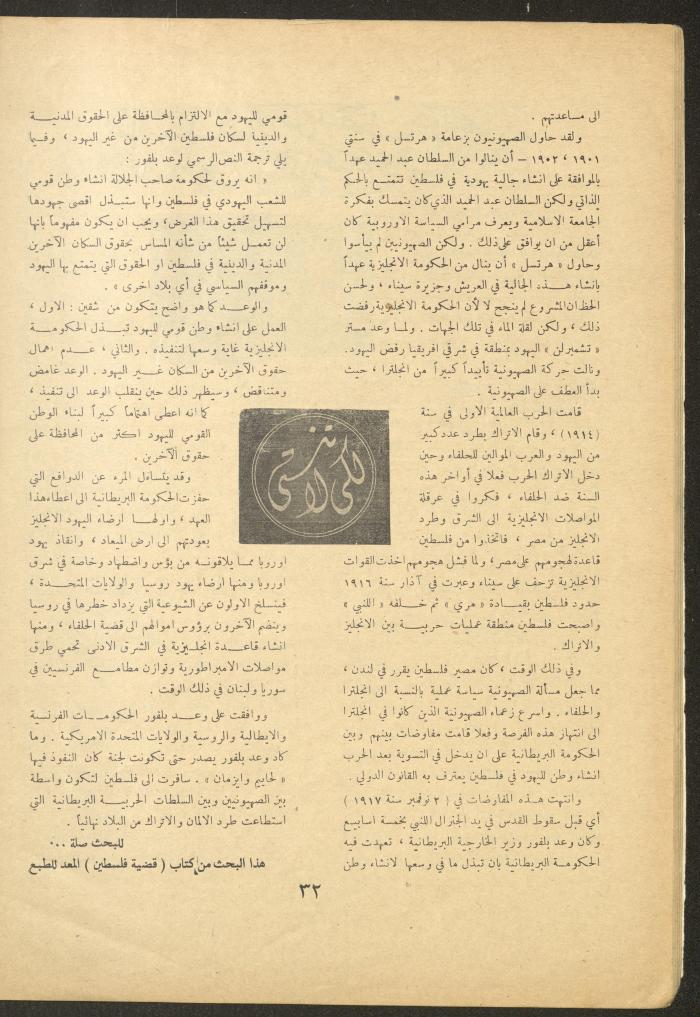 الى مساعدتهم .
ولقد حاول الصهيونيون بزعامة « هرتسل » في سنتي
١٩٠١ ، ١٩٠٢ – أن ينالوا من السلطان عبد الحميد عهداً
بالموافقة على انشاء جالية يهودية في فلسطين تتمتع بالحكم
الذاتي ولكن السلطان عبد الحميد الذي كان يتمسك بفكرة
الجامعة الاسلامية ويعرف مرامي السياسة الاوروبية كان
أعقل من ان يوافق على ذلك . ولكن الصهيونيين لم ييأسوا
وحاول « هرتسل » أن ينال من الحكومة الانجليزية عهداً
بانشاء هذه الجالية في العريش وجزيرة سيناء ، ولحسن
الحظ ان المشروع لم ينجح لا لأن الحكومة الانجليزية رفضت
ذلك ، ولكن لقلة الماء في تلك الجهات . ولما وعد مستر
« تشمبرلن » اليهود بمنطقة في شرقي افريقيا رفض اليهود.
ونالت حركة الصهيونية تأييداً كبيراً من انجلترا ، حيث
بدأ العطف على الصهيونية .
قامت الحرب العالمية الاولى في سنة
( ١٩١٤ ) ، وقام الاتراك بطرد عدد كبير
من اليهود والعرب الموالين للحلفاء وحين
دخل الاتراك الحرب فعلا في أواخر هذه
السنة ضد الحلفاء ، فكروا في عرقلة
المواصلات الانجليزية الى الشرق وطرد
الانجليز من مصر ، فاتخذوا من فلسطين
قاعدة لهجومهم على مصر ، ولما فشل هجومهم اخذت القوات
الانجليزية تزحف على سيناء وعبرت في آذار سنة ١٩١٦
حدود فلسطين بقيادة « مري » ثم خلفه « اللنبي »
واصبحت فلسطين منطقة عمليات حربية بين الانجليز
والاتراك .
وفي ذلك الوقت ، كان مصير فلسطين يقرر في لندن ،
مما جعل مسألة الصهيونية سياسة عملية بالنسبة الى انجلترا
والحلفاء . واسرع زعماء الصهيونية الذين كانوا في انجلترا
الى انتهاز هذه الفرصة وفعلا قامت مفاوضات بينهم وبين
الحكومة البريطانية على ان يدخل في التسوية بعد الحرب
انشاء وطن لليهود في فلسطين يعترف به القانون الدولي .
وانتهت هذه المفاوضات في ( ٢ نوفمبر سنة ١٩١٧ )
أي قبل سقوط القدس في يد الجنرال اللنبي بخمسة اسابيع
وكان وعد بلفور وزير الخارجية البريطانية ، تعهدت فيه
الحكومة البريطانية بان تبذل ما في وسعها لانشاء وطن
قومي لليهود مع الالتزام بالمحافظة على الحقوق المدنية
والدينية لسكان فلسطين الآخرين من غير اليهود ، وفيما
يلي ترجمة النص الرسمي لوعد بلفور :
« انه يروق لحكومة صاحب الجلالة انشاء وطن قومي
للشعب اليهودي في فلسطين وانها ستبذل اقصى جهودها
لتسهيل تحقيق هذا الغرض، ويجب ان يكون مفهوماً بانها
لن تعمل شيئاً من شأنه المساس بحقوق السكان الآخرين
المدنية والدينية في فلسطين او الحقوق التي يتمتع بها اليهود
وموقفهم السياسي في أي بلاد اخرى » .
والوعد كما هو واضح يتكون من شقين : الاول ،
العمل على انشاء وطن قومي لليهود تبذل الحكومة
الانجليزية غاية وسعها لتنفيذه . والثاني ، عدم اهمال
حقوق الآخرين من السكان غير اليهود . الوعد غامض
ومتناقض ، وسيظهر ذلك حين ينقلب الوعد الى تنفيذ ،
كما انه اعطى اهتماماً كبيراً لبناء الوطن
القومي لليهود اكثر من المحافظة على
حقوق الآخرين .
وقد يتساءل المرء عن الدوافع التي
حفزت الحكومة البريطانية الى اعطاء هذا
العهد ، واولها ارضاء اليهود الانجليز
بعودتهم الى ارض الميعاد ، وانقاذ يهود
اوروبا مما يلاقونه من بؤس واضطهاد وخاصة في شرق
اوروبا ومنها ارضاء يهود روسيا والولايات المتحدة ،
فينسلخ الاولون عن الشيوعية التي يزداد خطرها في روسيا
وينضم الآخرون برؤوس اموالهم الى قضية الحلفاء ، ومنها
انشاء قاعدة انجليزية في الشرق الادنى تحمي طرق
مواصلات الامبراطورية وتوازن مطامع الفرنسيين في
سوريا ولبنان في ذلك الوقت .
ووافقت على وعد بلفور الحكومات الفرنسية
والايطالية والروسية والولايات المتحدة الامريكية . وما
كاد وعد بلفور يصدر حتى تكونت لجنة كان النفوذ فيها
« لحاييم وايزمان » . سافرت الى فلسطين لتكون واسطة
بين الصهيونيين وبين السلطات الحربية البريطانية التي
استطاعت طرد الالمان والاتراك من البلاد نهائياً .
للبحث صلة ...
هذا البحث من كتاب ( قضية فلسطين ) المعد للطبع
لكي لا تنسى
٣٢